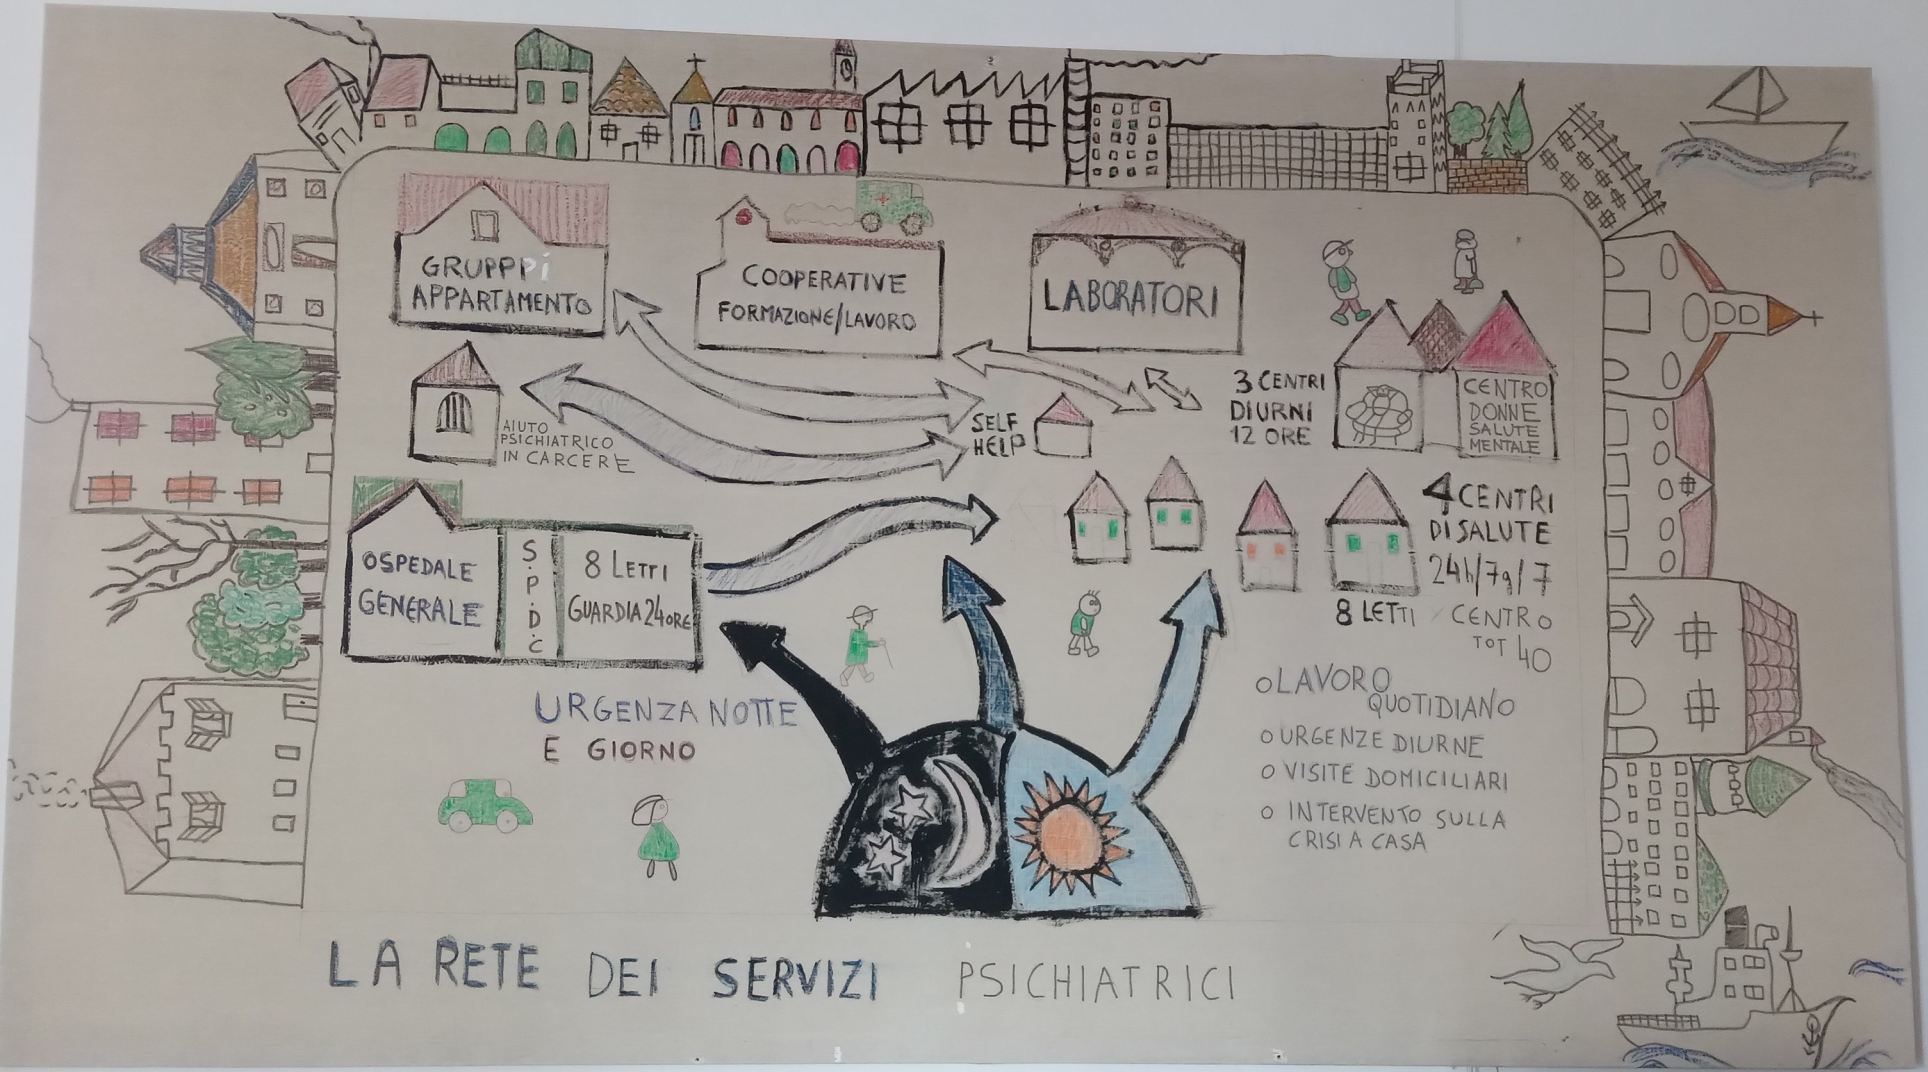 GRUPPPi
APPARTAMENTO
COOPERATIVE
FORMAZIONE/LAVORO
LABORATORI
AIUTO
PSICHIATRICO
IN CARCERE
SELF
HELP
3 CENTRI
DIURNI
12 ORE
CENTRO
DONNE
SALUTE
MENTALE
OSPEDALE
GENERALE
S.
P.
D.
C
8 LETTI
GUARDIA 24 ORE
4 CENTRI
DI SALUTE
24h/7g/7
8 LETTI / CENTRO
TOT 40
URGENZA NOTTE
E GIORNO
O LAVORO
QUOTIDIANO
O URGENZE DIURNE
O VISITE DOMICILIARI
O INTERVENTO SULLA
CRISI A CASA
LA RETE DEI SERVIZI PSICHIATRICI